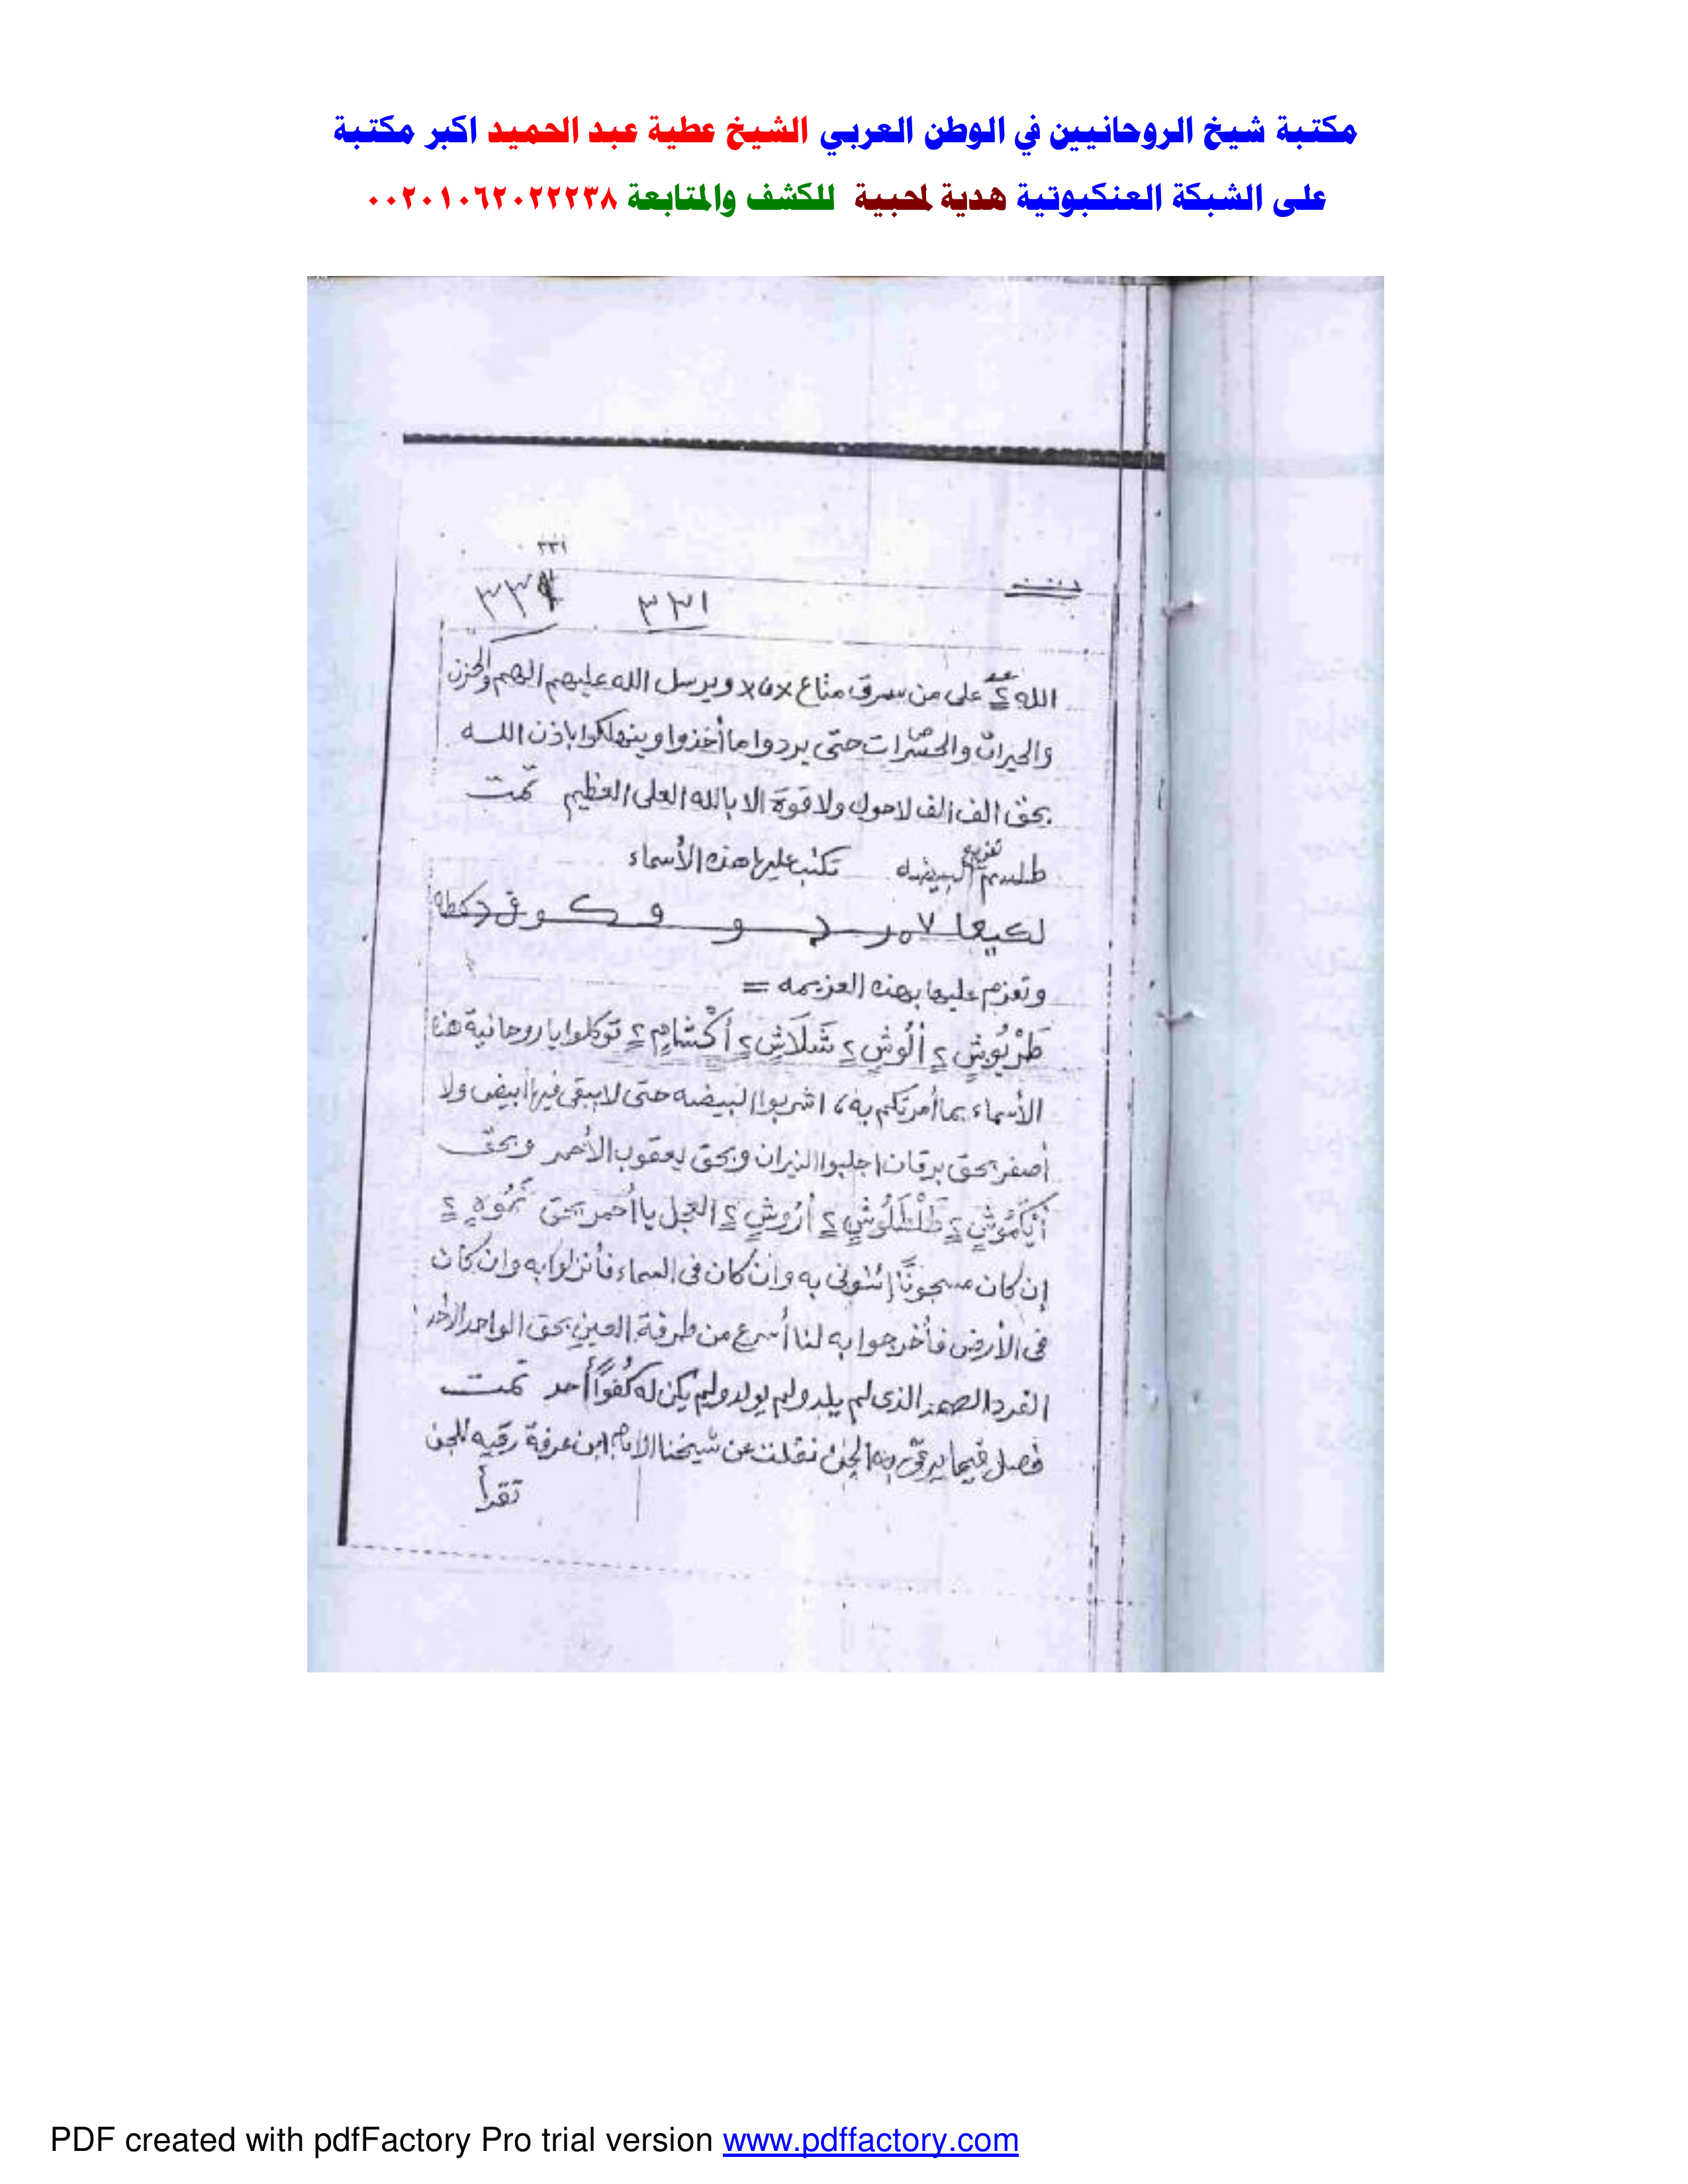 مكتبة شيخ الروحانيين في الوطن العربي الشيخ عطية عبد الحميد اكبر مكتبة
على الشبكة العنكبوتية هدية لمحبية للكشف والمتابعة ٠٠٢٠١٠٦٢٠٢٢٢٣٨
٣٣١
٣٣١
الله على من سرق متاع ويرسل الله عليهم الهم والحزن
والحيران والحسرات حتى يردوا ما أخذوا وينهلكوا باذن الله
بحق الف الف لاحول ولا قوة الا بالله العلى العظيم تمت
طلسم تفريغ البيضه تكتب عليها هذه الأسماء
وتعزم عليها بهذه العزيمه =
طَرْيُوشٍ ٢ أَلُوشٍ ٢ شَلَاشٍ ٢ أَكْشَامٍ ٢ توكلوا يا روحانية هذه
الأسماء بما أمرتكم به، اشربوا البيضه حتى لا يبقى فيها أبيض ولا
أصفر بحق برقان اجلبوا النيران وبحق يعقوب الأحمر وبحق
أُرُوشٍ ٢ العجل يا أحمر بحق
إن كان مسجونًا إئتونى به وان كان فى السماء فأنزلوا به وان كان
فى الأرض فأخرجوا به لنا أسرع من طرفة العين بحق الواحد الأحد
الفرد الصمد الذى لم يلد ولم يولد ولم يكن له كُفُوًا أحد تمت
فصل فيما يرقى به الجن نقلت عن شيخنا الامام ابن عرفة رقيه للجن
تقرأ
PDF created with pdfFactory Pro trial version www.pdffactory.com